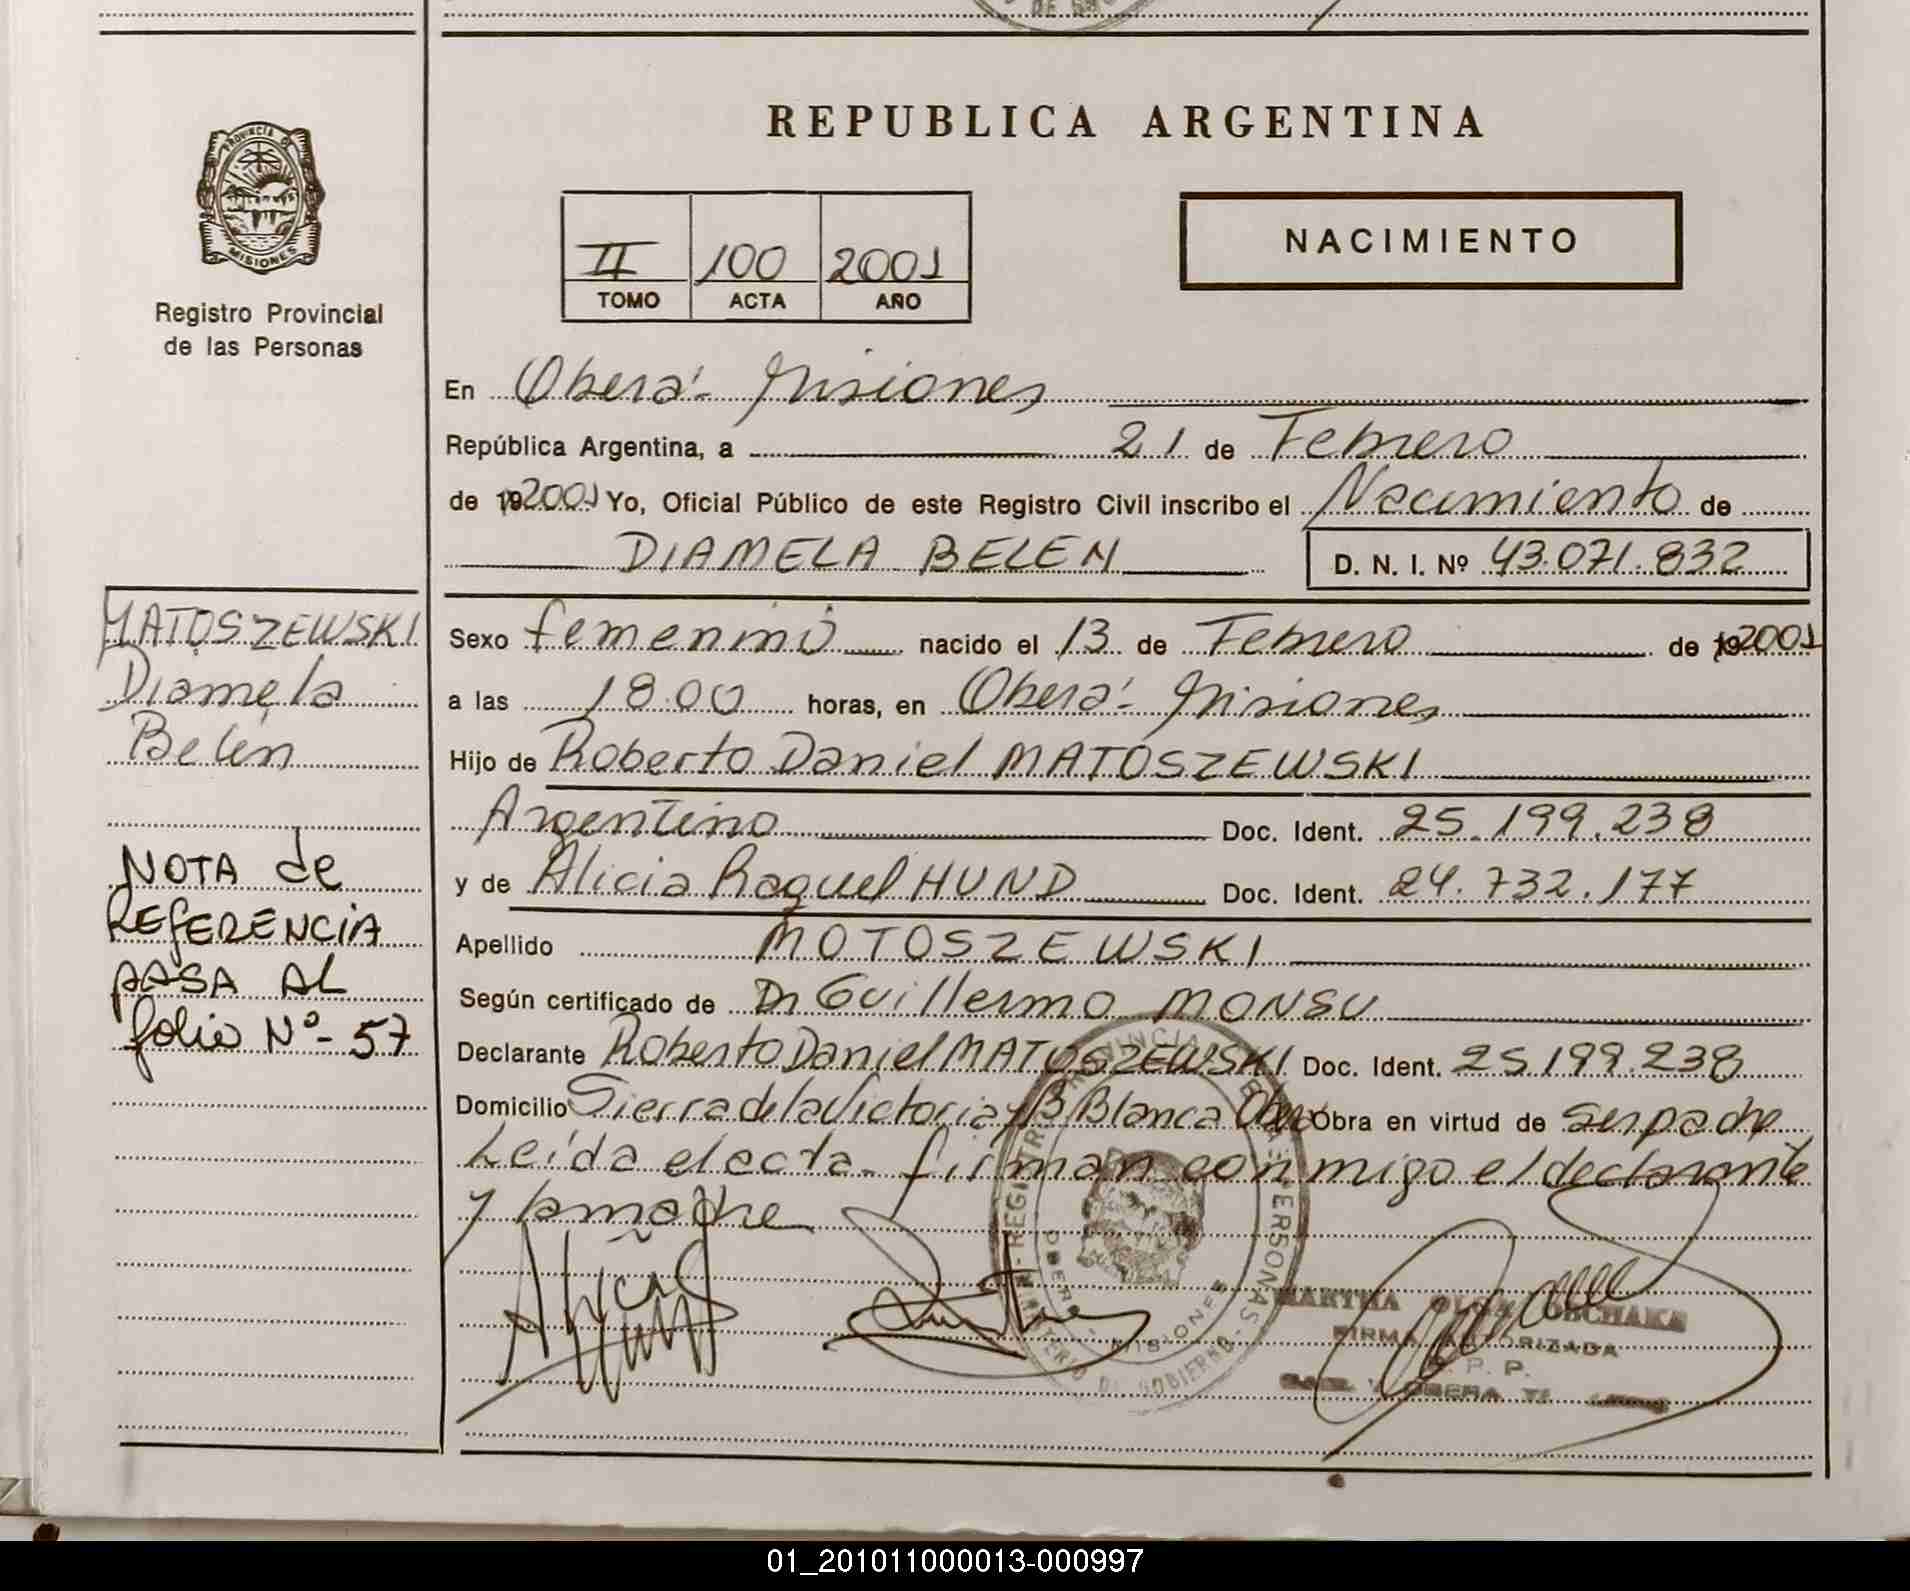 DE GO
REPUBLICA ARGENTINA
PROVINCIA DE
MISIONES
Registro Provincial
de las Personas
II 100 2001
TOMO ACTA AÑO
NACIMIENTO
En Oberá - Misiones
República Argentina, a 21 de Febrero
de 19 2001 Yo, Oficial Público de este Registro Civil inscribo el Nacimiento de
DIAMELA BELEN
D. N. I. Nº 43.071.832
MATOSZEWSKI
Diamela
Belén
NOTA de
REFERENCIA
PASA AL
folio Nº - 57
Sexo femenino nacido el 13 de Febrero de 19 2001
a las 18.00 horas, en Oberá - Misiones
Hijo de Roberto Daniel MATOSZEWSKI
Argentino Doc. Ident. 25.199.238
y de Alicia Raquel HUND Doc. Ident. 24.732.177
Apellido MOTOSZEWSKI
Según certificado de Dr Guillermo MONSU
Declarante Roberto Daniel MATOSZEWSKI Doc. Ident. 25.199.238
Domicilio Sierra de la Victoria y B Blanca Oberá Obra en virtud de ser padre
Leída el acta - firman conmigo el declarante
y la madre
REGISTRO PROVINCIAL DE LAS PERSONAS
MINISTERIO DE GOBIERNO
OBERA MISIONES
MARTHA OLGA
FIRMA AUTORIZADA
R. P. P.
OBERA
01_201011000013-000997